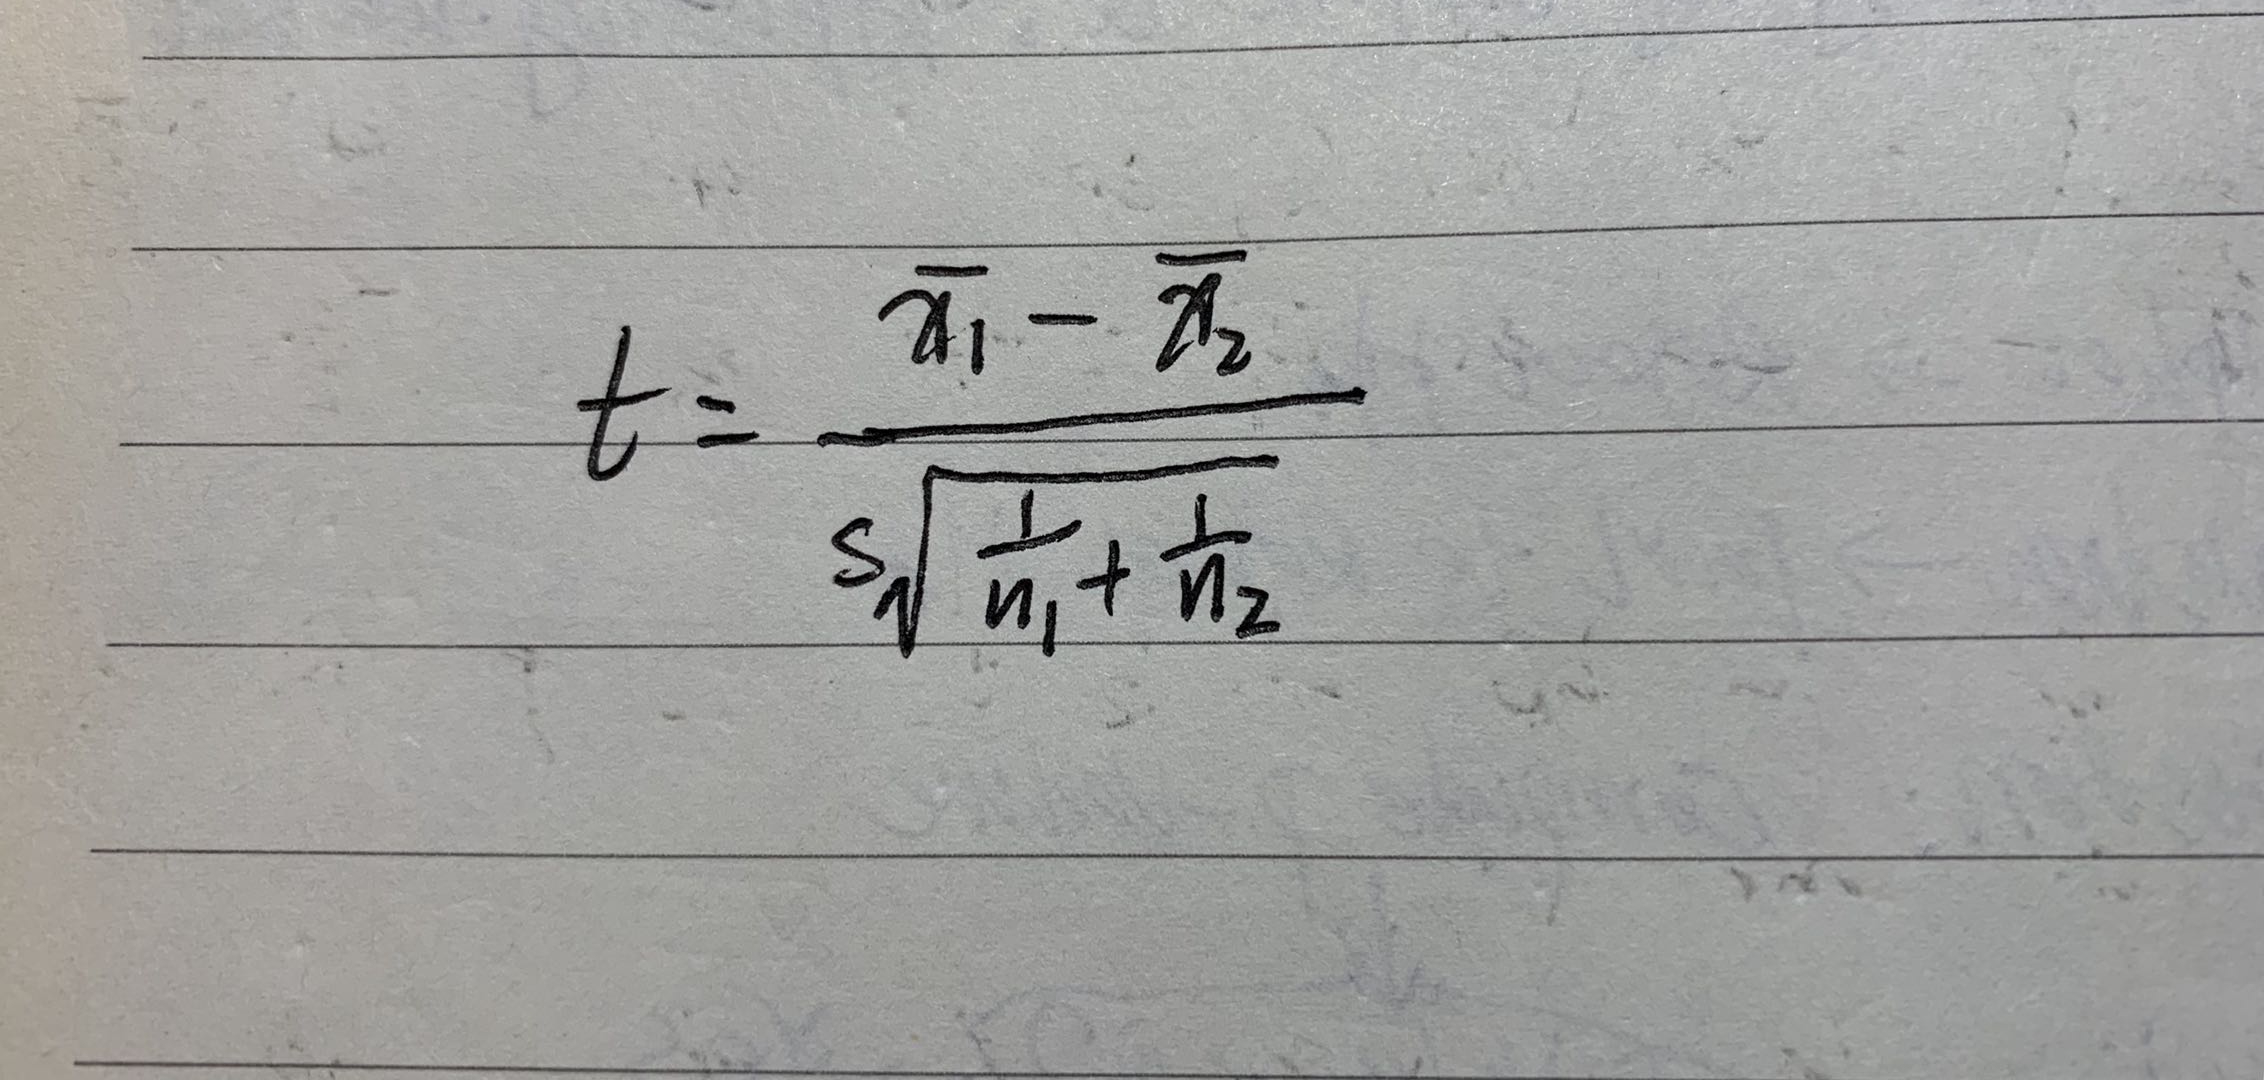 t = \frac{\bar{x}_1 - \bar{x}_2}{s\sqrt{\frac{1}{n_1} + \frac{1}{n_2}}}